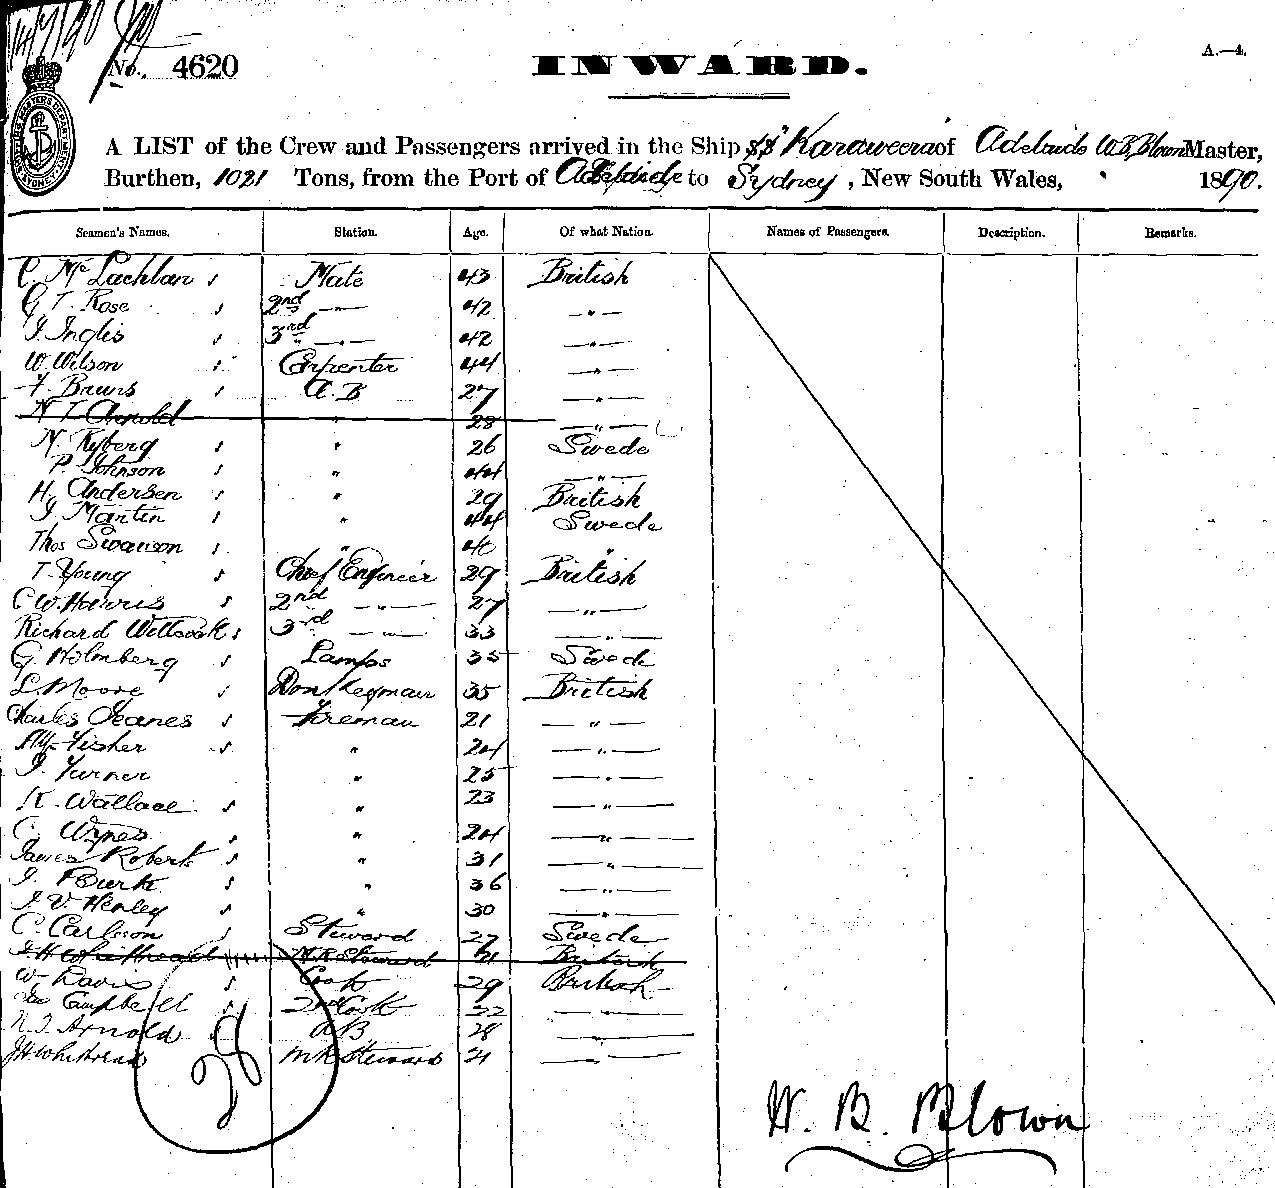 14/7/90
No. 4620
INWARD.
A.—4.
A LIST of the Crew and Passengers arrived in the Ship SS "Karaweera of Adelaide W.B. Blown Master,
Burthen, 1021 Tons, from the Port of Adelaide to Sydney, New South Wales, 1890.
Seamen's Names. Station. Age. Of what Nation. Names of Passengers. Description. Remarks.
C McLachlan s Mate 43 British
G T. Rose s 2nd —"— 42 —"—
J. Inglis s 3rd —"— 42 —"—
W. Wilson s Carpenter 44 —"—
F. Bruns s A.B 27 —"—
N T Arnold " 28 —"—
N. Ryberg s " 26 Swede
P. Johnson s " 44 —"—
H. Andersen s " 29 British
J Martin s " 44 Swede
Thos Swanson s " 40 "
T. Young s Chief Engineer 29 British
C W. Harris s 2nd —"— 27 —"—
Richard s 3rd —"— 33 —"—
G. Holmberg s Lamps 35 Swede
L. Moore s Donkeyman 35 British
Charles Jeanes s Fireman 21 —"—
Fisher s " 24 —"—
J. Turner " 25 —"—
K. Wallace s " 23 —"—
C. Wynes s " 24 —"—
James Robert s " 31 —"—
J. Burk s " 36 —"—
J. V. Henley s " 30 —"—
C. Carlsson s Steward 27 Swede
J H Whitbread M R Steward 21 British
W. Davis s Cook 29 British
Jas Campbell s 2nd Cook 22 —"—
N. T. Arnold s AB 28 —"—
J H Whitbread M R Steward 21 —"—
28
W. B. Blown